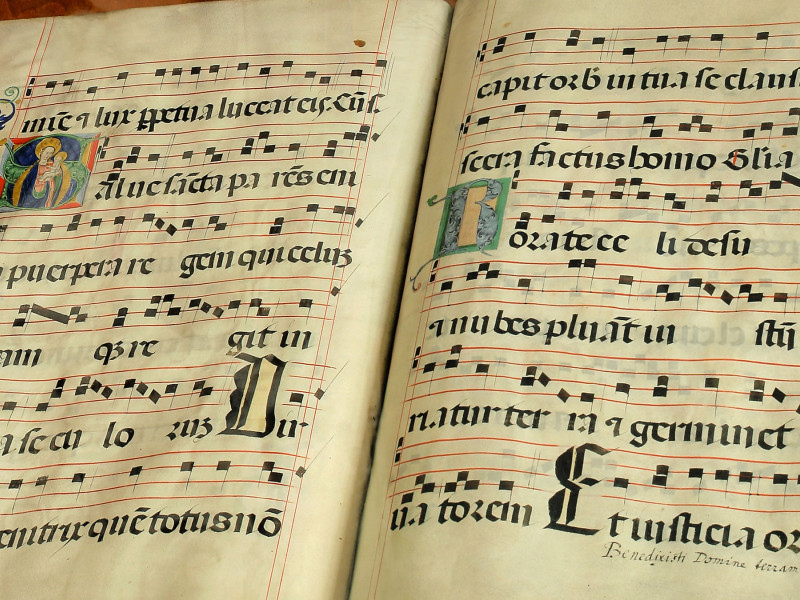 mie᷑ ⁊ lux ꝑpetua luceat eis. Cũ s.
Salue sãcta parẽs eni
puerpera regem qui celuꝫ
am qꝫ regit in
a secu loruꝫ Uir
enitrix quẽ totus nõ
capit orb in tua se claus
scera factus homo Gl̃ia
Rorate celi desu
⁊ nubes pluãt iu stũ
riatur terra ⁊ germinet
uatorem Et iusticia or
Benedixisti Domine terram